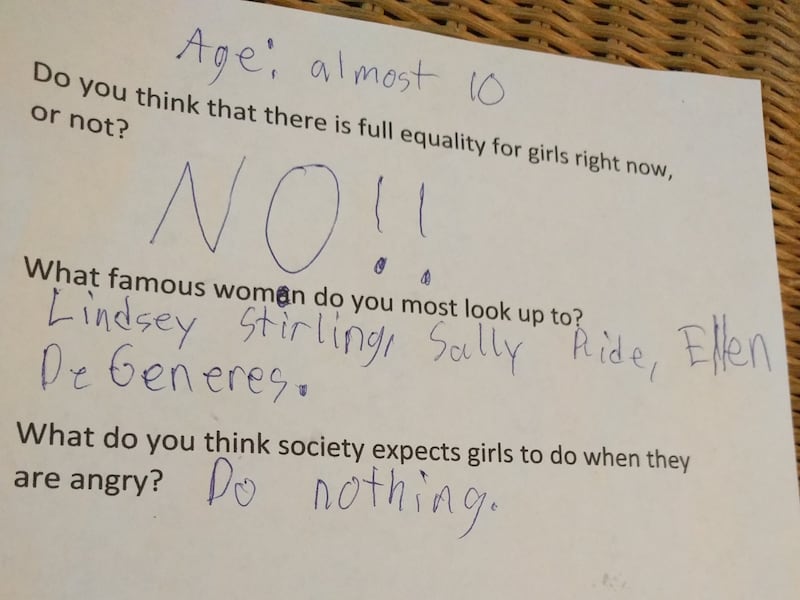 Age: almost 10
Do you think that there is full equality for girls right now,
or not?
NO!!
What famous women do you most look up to?
Lindsey Stirling, Sally Ride, Ellen
DeGeneres.
What do you think society expects girls to do when they
are angry? Do nothing.